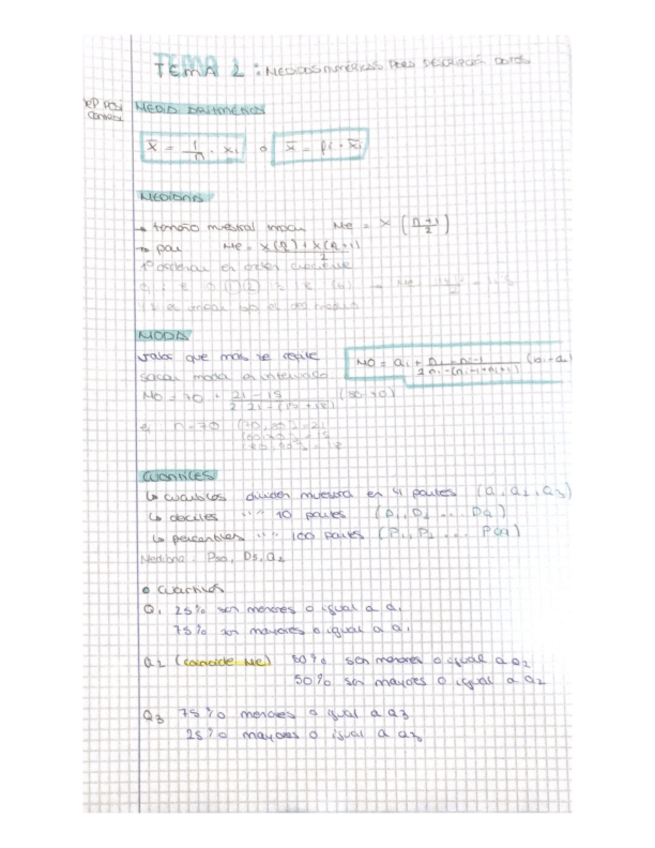 TEMA 2: MEDIDAS NUMÉRICAS PARA DESCRIPCIÓN DATOS
MEDIA ARITMÉTICA
x̄ = 1/n · xi o x̄ = fi · x̄i
MEDIANA
→ tamaño muestral impar Me = x (n+1/2)
→ par Me =
1º ordenar en orden creciente
MODA
valor que más se repite
sacar moda en intervalo
Mo = ai + ni - ni-1 / 2ni - (ni-1 + ni+1)
Mo = 70 + 21 - 15 / 2·21 - (15 + 18) (80-70)
n = 70
CUANTILES
↳ cuartiles dividen muestra en 4 partes (Q1, Q2, Q3)
↳ deciles "" 10 partes (D1, D2 ... D9)
↳ percentiles "" 100 partes (P1, P2 ... P99)
Mediana: P50, D5, Q2
• Cuartiles
Q1 25% son menores o igual a Q1
75% son mayores o igual a Q1
Q2 (coincide Me) 50% son menores o igual a Q2
50% son mayores o igual a Q2
Q3 75% menores o igual a Q3
25% mayores o igual a Q3